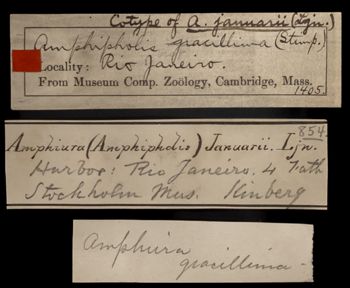 Cotype of A. januarii (Ljn.)
Amphipholis gracillima (Stimp.)
Locality: Rio Janeiro.
From Museum Comp. Zoölogy, Cambridge, Mass.
1405.
854
Amphiura (Amphipholis) Januarii. Ljn.
Harbor: Rio Janeiro. 4 Fath
Stockholm Mus. Kinberg
Amphiura
gracillima -